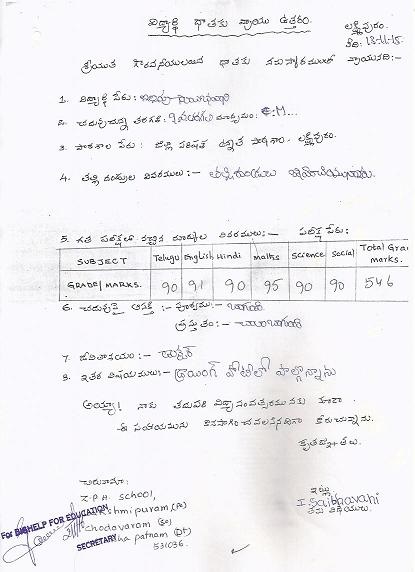 విద్యార్థి దాతకు వ్రాయు ఉత్తరం.
లక్ష్మీపురం.
తేది: 13-11-15.
శ్రీయుత గౌరవనీయులయిన దాతకు నమస్కారములతో వ్రాయునది:-
1. విద్యార్థి పేరు:
2. చదువుచున్న తరగతి: మాధ్యమం: E.M...
3. పాఠశాల పేరు: జిల్లా పరిషత్ ఉన్నత పాఠశాల, లక్ష్మీపురం.
4. తల్లి దండ్రుల వివరములు:- తల్లిదండ్రులు
5. గత పరీక్షలో వచ్చిన మార్కుల వివరములు:- పరీక్ష పేరు:
SUBJECT Telugu English Hindi maths Science Social Total Gra marks.
GRADE/MARKS. 90 91 90 95 90 90 546
6. చదువుపై ఆసక్తి :- పూర్వము:- బాగుంది
ప్రస్తుతం:- చాలాబాగుంది
7. జీవితాశయం:- డాక్టర్
8. ఇతర విషయములు:- డ్రాయింగ్ పోటీలో పాల్గొన్నాను
అయ్యా! నాకు తదుపరి విద్యాసంవత్సరమునకు కూడా
ఈ సహాయమును కొనసాగించవలసినదిగా కోరుచున్నాను.
కృతజ్ఞతలు.
చిరునామా:
Z.P.H. School,
Lakshmipuram (Po)
Chodavaram (so)
Visakha patnam (Dt)
531036.
For BIGHELP FOR EDUCATION
SECRETARY
ఇట్లు
I. Saibhavani
తమ విధేయులు.